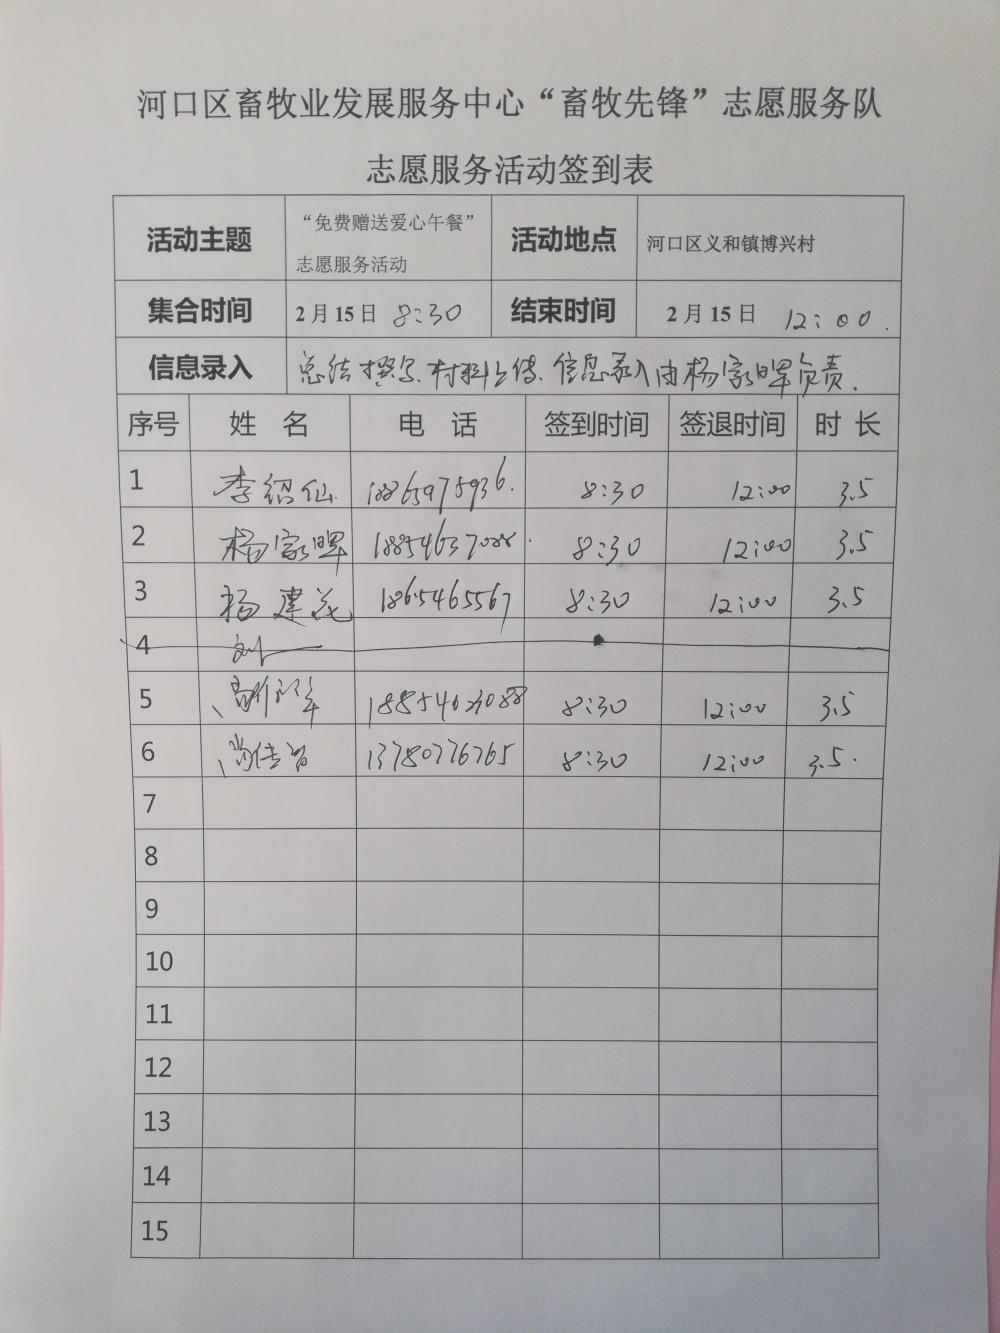 河口区畜牧业发展服务中心“畜牧先锋”志愿服务队
志愿服务活动签到表
活动主题 “免费赠送爱心午餐” 志愿服务活动 活动地点 河口区义和镇博兴村
集合时间 2月15日 8:30 结束时间 2月15日 12:00.
信息录入 总结撰写.材料上传.信息录入由杨家晖负责.
序号 姓 名 电 话 签到时间 签退时间 时 长
1 李绍仙 18865975936. 8:30 12:00 3.5
2 杨家晖 8:30 12:00 3.5
3 杨建花 18654655567 8:30 12:00 3.5
4 刘
5 8:30 12:00 3.5
6 尚佳智 13780776765 8:30 12:00 3.5.
7
8
9
10
11
12
13
14
15